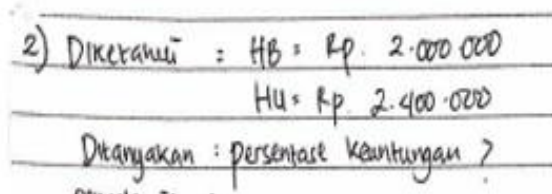 2) Diketahui : HB = Rp. 2.000.000
HU = Rp. 2.400.000
Ditanyakan : persentase keuntungan ?